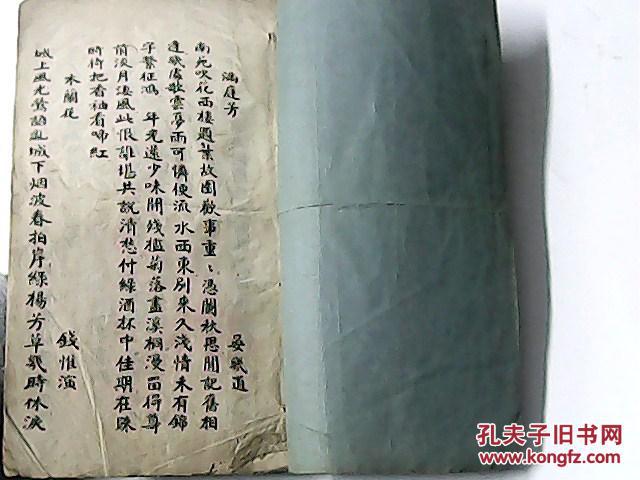 满庭芳 晏幾道
南苑吹花西樓題葉故園歡事重〻凭闌秋思閒記舊相
逢幾處歌雲夢雨可憐便流水西東别來久淺情未有錦
字繫征鴻 年光還少味開殘檻菊落盡溪桐漫留得尊
前淡月凄風此恨誰堪共説清愁付緑酒杯中佳期在歸
時待把香袖看啼紅
木蘭花 錢惟演
城上風光鶯語亂城下烟波春拍岸緑楊芳草幾時休淚
孔夫子旧书网
www.kongfz.com